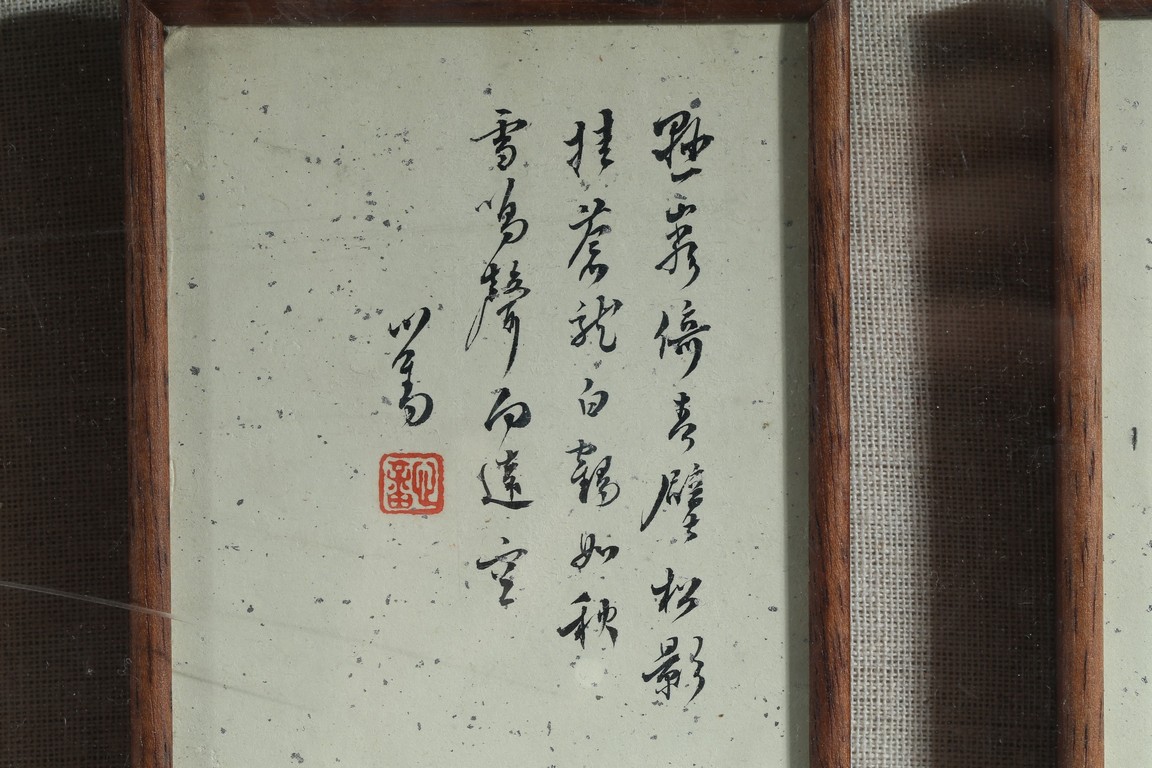 懸巖倚青壁松影
挂蒼龍白鶴如秋
雪鳴聲向遠空
心畬
心畬